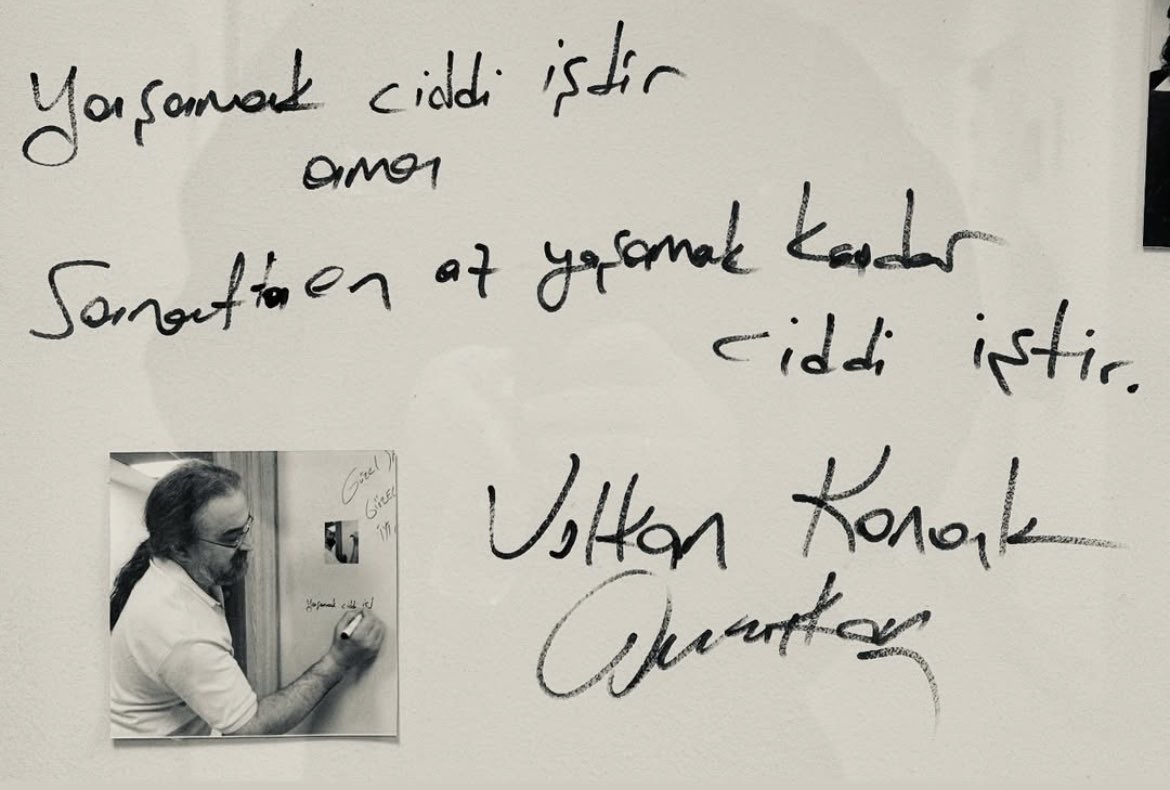 Yaşamak ciddi iştir
ama
Sanatta en az yaşamak kadar
ciddi iştir.
Volkan Konak
Güzel
GÜZEL
Yaşamak ciddi işt